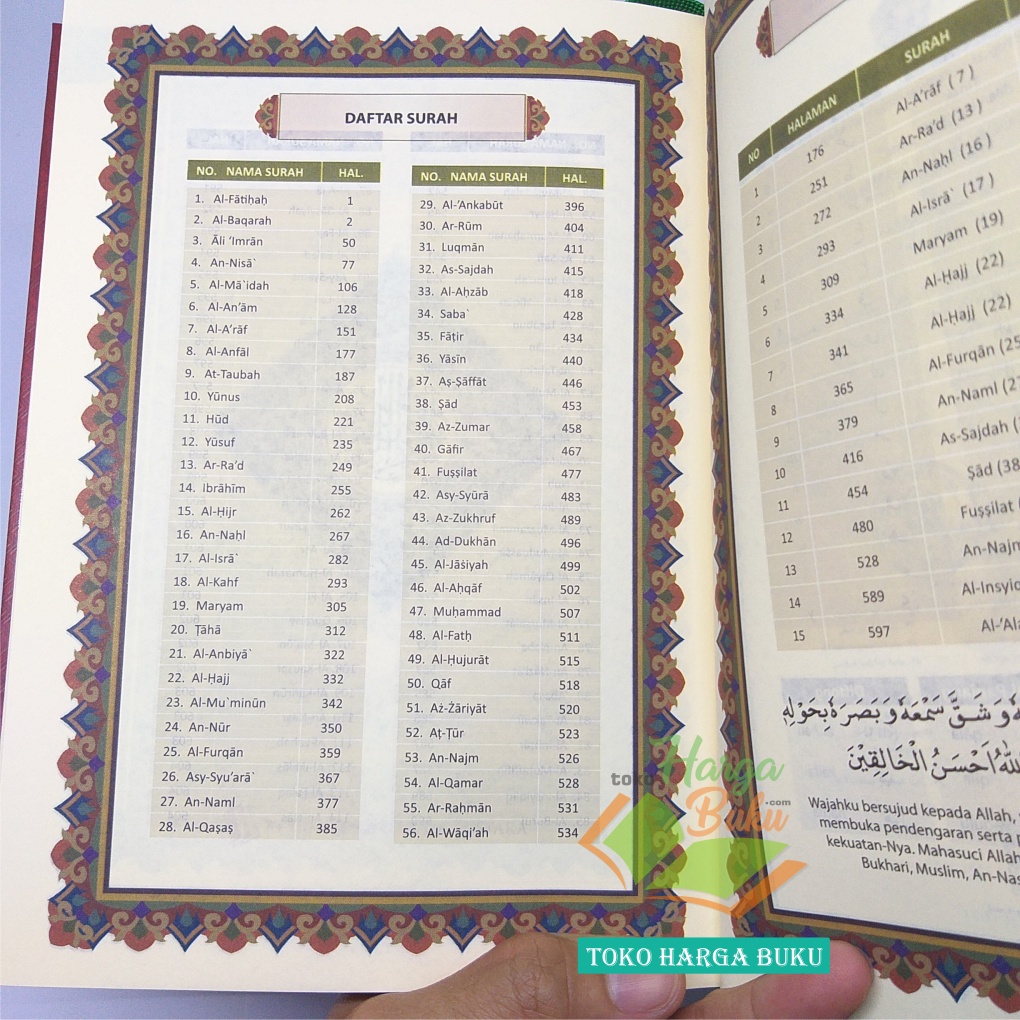 DAFTAR SURAH
NO. NAMA SURAH HAL.
1. Al-Fātiḥaḥ 1
2. Al-Baqarah 2
3. Āli ‘Imrān 50
4. An-Nisā` 77
5. Al-Mā`idah 106
6. Al-An’ām 128
7. Al-A’rāf 151
8. Al-Anfāl 177
9. At-Taubah 187
10. Yūnus 208
11. Hūd 221
12. Yūsuf 235
13. Ar-Ra’d 249
14. Ibrāhīm 255
15. Al-Ḥijr 262
16. An-Naḥl 267
17. Al-Isrā` 282
18. Al-Kahf 293
19. Maryam 305
20. Ṭāhā 312
21. Al-Anbiyā` 322
22. Al-Ḥajj 332
23. Al-Mu`minūn 342
24. An-Nūr 350
25. Al-Furqān 359
26. Asy-Syu’arā` 367
27. An-Naml 377
28. Al-Qaṣaṣ 385
NO. NAMA SURAH HAL.
29. Al-‘Ankabūt 396
30. Ar-Rūm 404
31. Luqmān 411
32. As-Sajdah 415
33. Al-Aḥzāb 418
34. Saba` 428
35. Fāṭir 434
36. Yāsīn 440
37. Aṣ-Ṣāffāt 446
38. Ṣād 453
39. Az-Zumar 458
40. Gāfir 467
41. Fuṣṣilat 477
42. Asy-Syūrā 483
43. Az-Zukhruf 489
44. Ad-Dukhān 496
45. Al-Jāṡiyah 499
46. Al-Aḥqāf 502
47. Muḥammad 507
48. Al-Fatḥ 511
49. Al-Ḥujurāt 515
50. Qāf 518
51. Aż-Żāriyāt 520
52. Aṭ-Ṭūr 523
53. An-Najm 526
54. Al-Qamar 528
55. Ar-Raḥmān 531
56. Al-Wāqi’ah 534
NO HALAMAN SURAH
1 176 Al-A’rāf (7)
2 251 Ar-Ra’d (13)
3 272 An-Naḥl (16)
4 293 Al-Isrā` (17)
5 309 Maryam (19)
6 334 Al-Ḥajj (22)
7 341 Al-Ḥajj (22)
8 365 Al-Furqān (25
9 379 An-Naml
10 416 As-Sajdah
11 454 Ṣād (38
12 480 Fuṣṣilat
13 528 An-Najm
14 589
15 597
وَشَقَّ سَمْعَهُ وَبَصَرَهُ بِحَوْلِهِ
اللهُ اَحْسَنُ الْخَالِقِيْنَ
Wajahku bersujud kepada Allah,
membuka pendengaran serta
kekuatan-Nya. Mahasuci Allah
Bukhari, Muslim,
toko Harga
Buku .com
TOKO HARGA BUKU